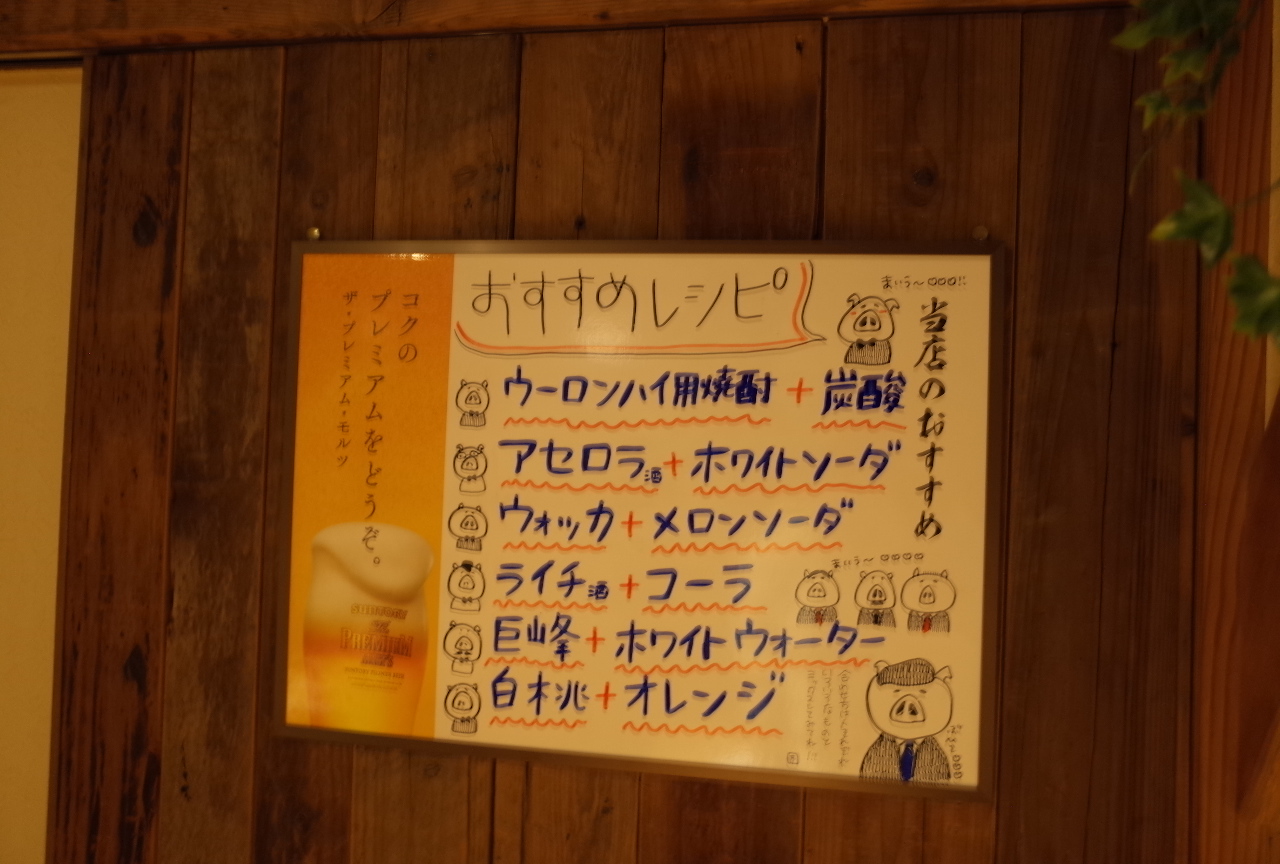 コクの
プレミアムをどうぞ。
ザ・プレミアム・モルツ
SUNTORY
THE
PREMIUM
MALT'S
おすすめレシピ
まいう〜
当店のおすすめ
ウーロンハイ用焼酎+炭酸
アセロラ酒+ホワイトソーダ
ウォッカ+メロンソーダ
ライチ酒+コーラ
巨峰+ホワイトウォーター
白桃+オレンジ
まいう〜